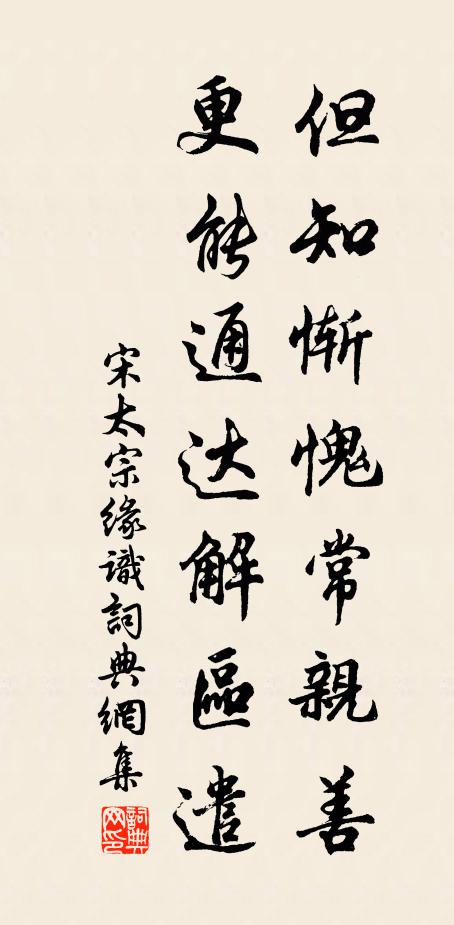 但知慚愧常親善
更能通达解區遣
宋太宗緣識詞典網集
詞典网印